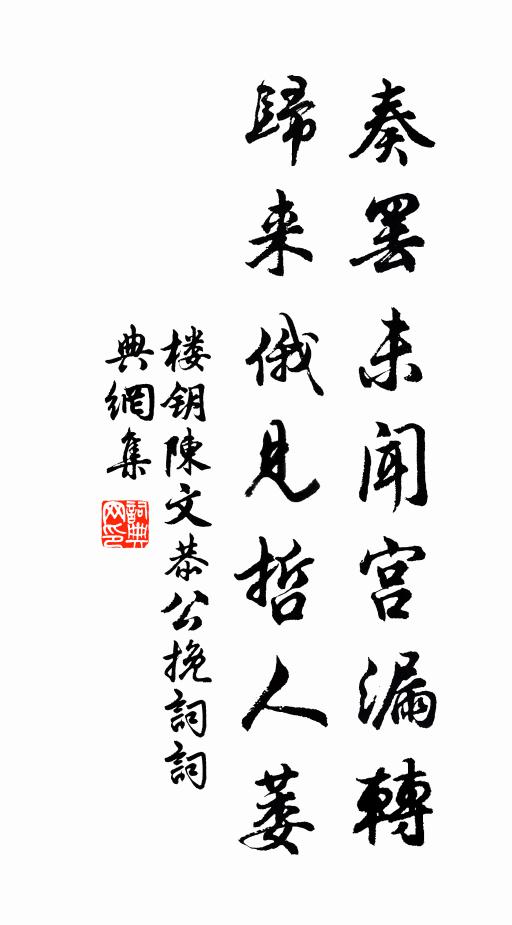 奏罢未闻宫漏轉
歸来俄見哲人萎
楼钥陳文恭公挽詞詞
典網集
詞典
网印